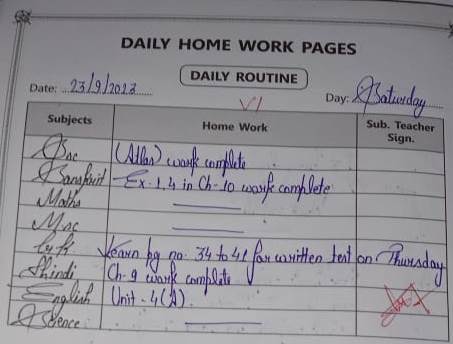 DAILY HOME WORK PAGES
DAILY ROUTINE
Date: 23/9/2023
Day: Saturday
VI
Subjects Home Work Sub. Teacher Sign.
Ssc (Atlas) work complete
Sanskrit Ex-1,4 in Ch-10 work complete
Maths —
Msc —
Learn pg no. 34 to 41 for written test on Thursday
Hindi Ch-9 work complete
English Unit-4(A)
Science —